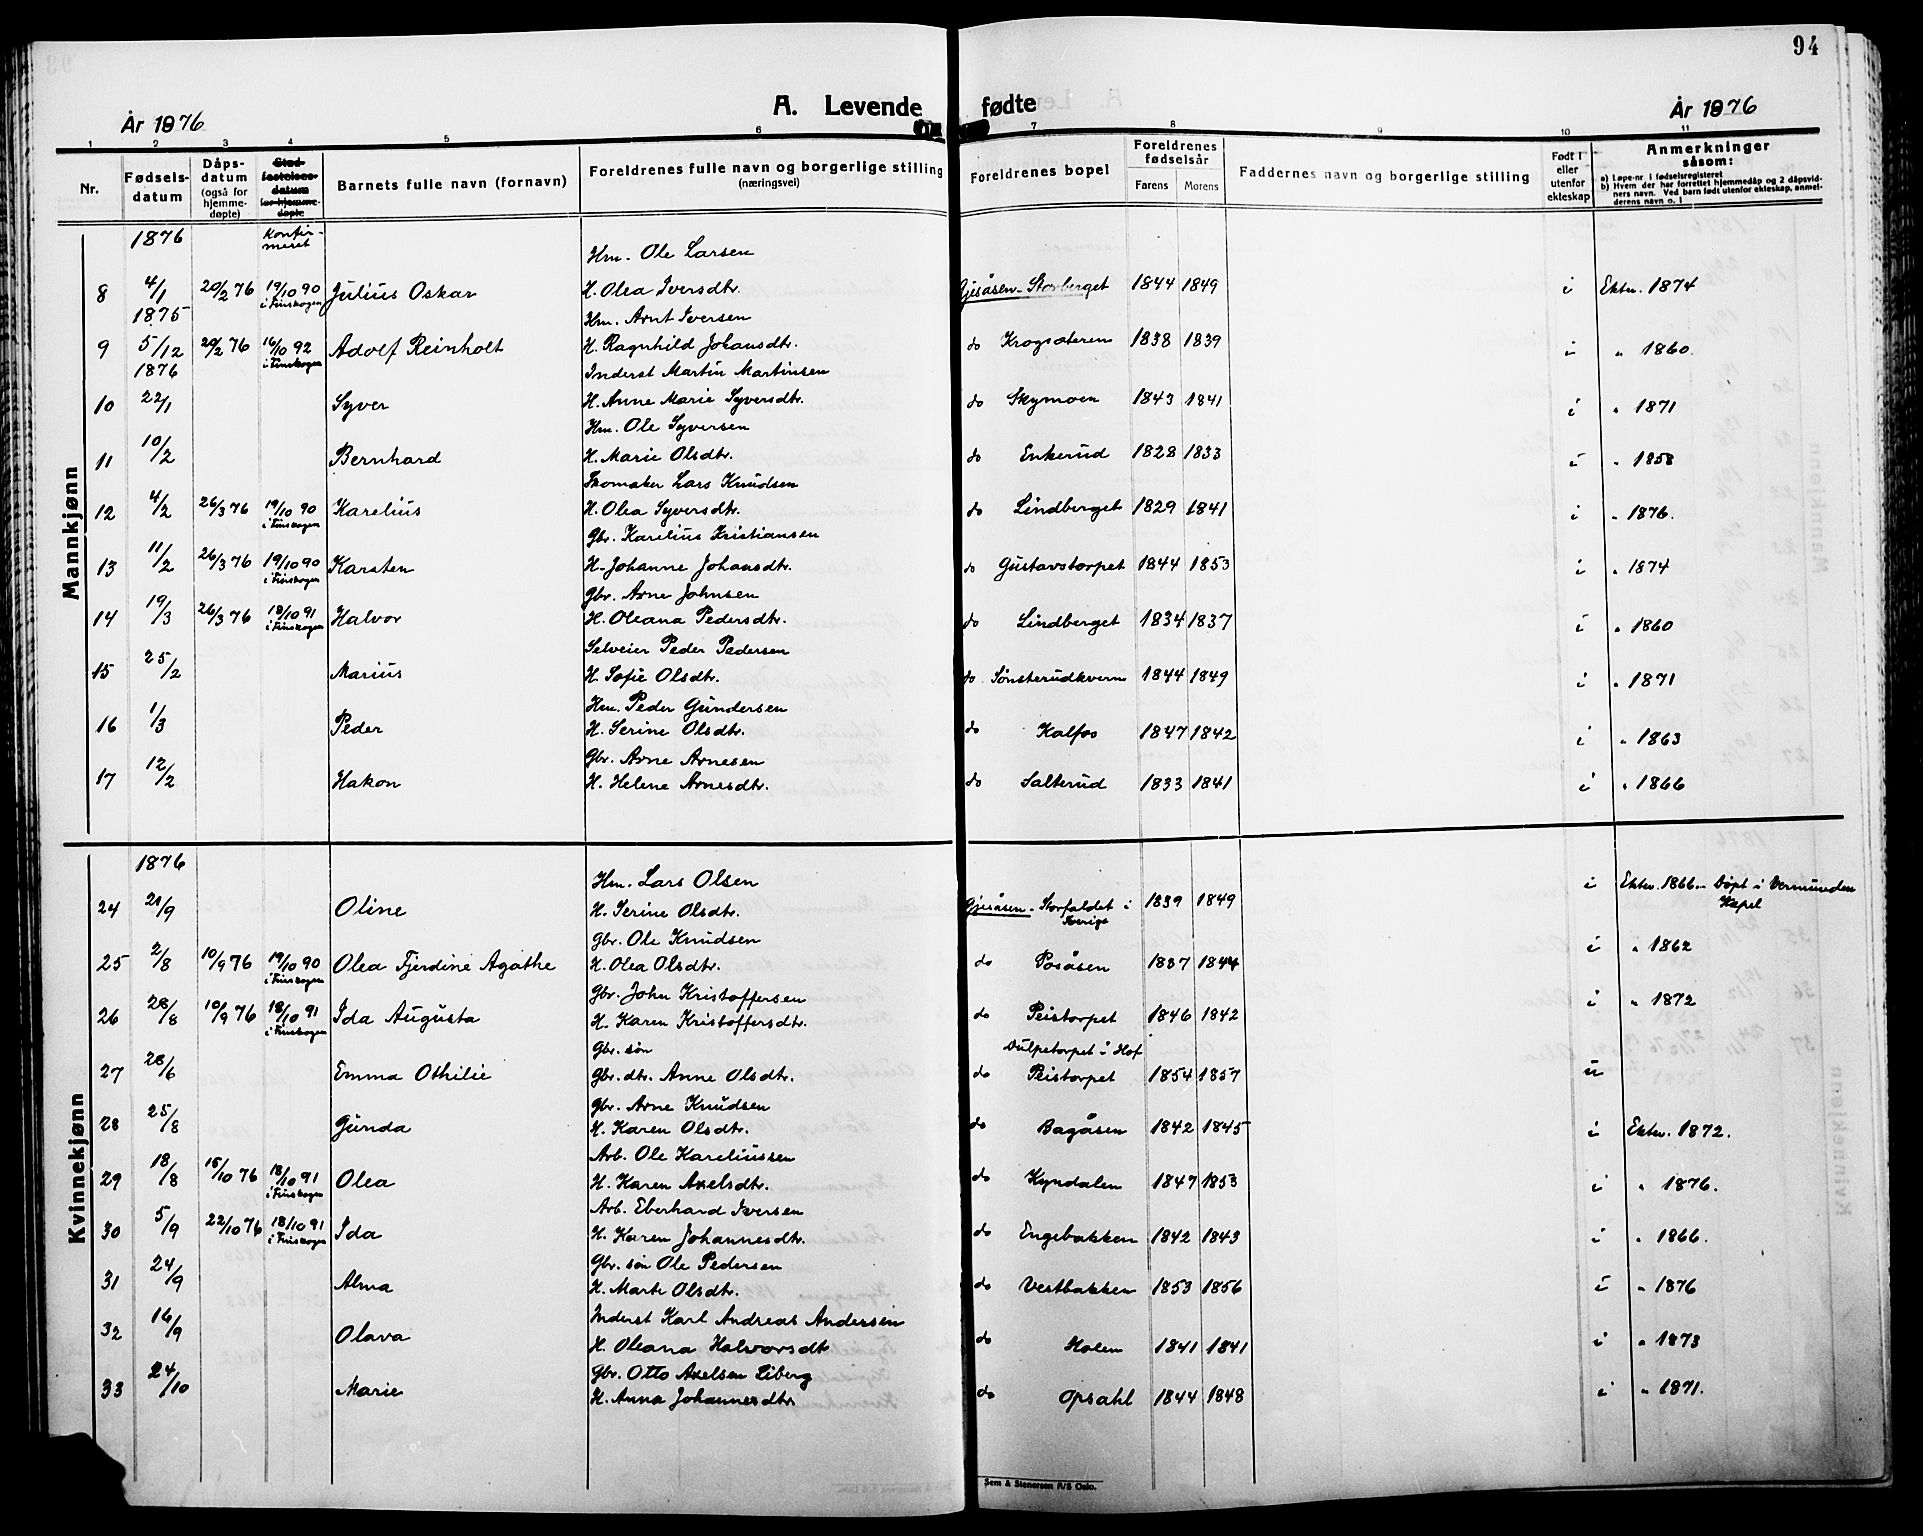 94
A. Levende fødte
År 1876
År 1876
1 2 3 4 5 6 7 8 9 10 11
Nr. Fødsels-datum Dåps-datum (også for hjemme-døpte) Stad-festelses-datum for hjemme-døpte Barnets fulle navn (fornavn) Foreldrenes fulle navn og borgerlige stilling (næringsvei) Foreldrenes bopel Foreldrenes fødselsår Farens Morens Faddernes navn og borgerlige stilling Født i eller utenfor ekteskap Anmerkninger såsom:
a) Løpe-nr i fødselsregisteret
b) Hvem der har forrettet hjemmedåp og 2 dåpsvidners navn. Ved barn født utenfor ekteskap, anmelderens navn o. l
Mannkjønn
1876 Konfirmeret
Hm. Ole Larsen
8 4/1 20/2 76 19/10 90 i Finskogen Julius Oskar H. Olea Iversdtr. Gjesåsen - Storberget 1844 1849 i Ektev. 1874
1875 Hm. Arnt Iversen
9 5/12 20/2 76 16/10 92 i Finskogen Adolf Reinholt H. Ragnhild Johansdtr. do Krogsæteren 1838 1839 i " 1860.
1876 Inderst Martin Martinsen
10 22/1 Syver H. Anne Marie Syversdtr. do Skymoen 1843 1841 i " 1871
Hm. Ole Syversen
11 10/2 Bernhard H. Marie Olsdtr. do Enkerud 1828 1833 i " 1858
Skomaker Lars Knudsen
12 4/2 26/3 76 19/10 90 i Finskogen Karelius H. Olea Syversdtr. do Lindberget 1829 1841 i " 1876.
Gbr. Karelius Kristiansen
13 11/2 26/3 76 19/10 90 i Finskogen Karsten H. Johanne Johansdtr. do Gustavstorpet 1844 1853 i " 1874
Gbr. Arne Johnsen
14 19/3 26/3 76 18/10 91 i Finskogen Halvor H. Oleana Pedersdtr. do Lindberget 1834 1837 i " 1860
Selveier Peder Pedersen
15 25/2 Marius H. Sofie Olsdtr. do Sønsterudkvern 1844 1849 i " 1871
Hm. Peder Gundersen
16 1/3 Peder H. Serine Olsdtr. do Kalfos 1847 1842 i " 1863
Gbr. Arne Arnesen
17 12/2 Hakon H. Helene Arnesdtr. do Salterud 1833 1841 i " 1866
Kvinnekjønn
1876
Hm. Lars Olsen
24 21/9 Oline H. Serine Olsdtr. Gjesåsen - Storfaldet i Sverige 1839 1849 i Ektev. 1866. Døpt i Vermunden Kapel
Gbr. Ole Knudsen
25 2/8 10/9 76 19/10 90 i Finskogen Olea Fjerdine Agathe H. Olea Olsdtr. do Posåsen 1837 1844 i " 1862
Gbr. John Kristoffersen
26 28/8 10/9 76 18/10 91 i Finskogen Ida Augusta H. Karen Kristoffersdtr. do Peistorpet 1846 1842 i " 1872
Gbr. søn Dulpetorpet i Hof
27 28/6 Emma Othilie Gbr. dtr. Anne Olsdtr. do Peistorpet 1854 1857 u
Gbr. Arne Knudsen
28 25/8 Gunda H. Karen Olsdtr. do Bagåsen 1842 1845 i Ektev. 1872.
Arb. Ole Kareliussen
29 18/8 15/10 76 18/10 91 i Finskogen Olea H. Karen Axelsdtr. do Kyndalen 1847 1853 i " 1876.
Arb. Eberhard Iversen
30 5/9 22/10 76 18/10 91 i Finskogen Ida H. Karen Johannesdtr. do Engebakken 1842 1843 i " 1866.
Gbr. søn Ole Pedersen
31 24/9 Alma H. Marte Olsdtr. do Vestbakken 1853 1856 i " 1876
Inderst Karl Andreas Andersen
32 16/9 Olava H. Oleana Halvorsdt do Holen 1841 1841 i " 1873
Gbr. Otto Axelsen Liberg
33 24/10 Marie H. Anna Johannesdtr. do Opsahl 1844 1848 i " 1871.
Sem & Stenersen A/S Oslo.